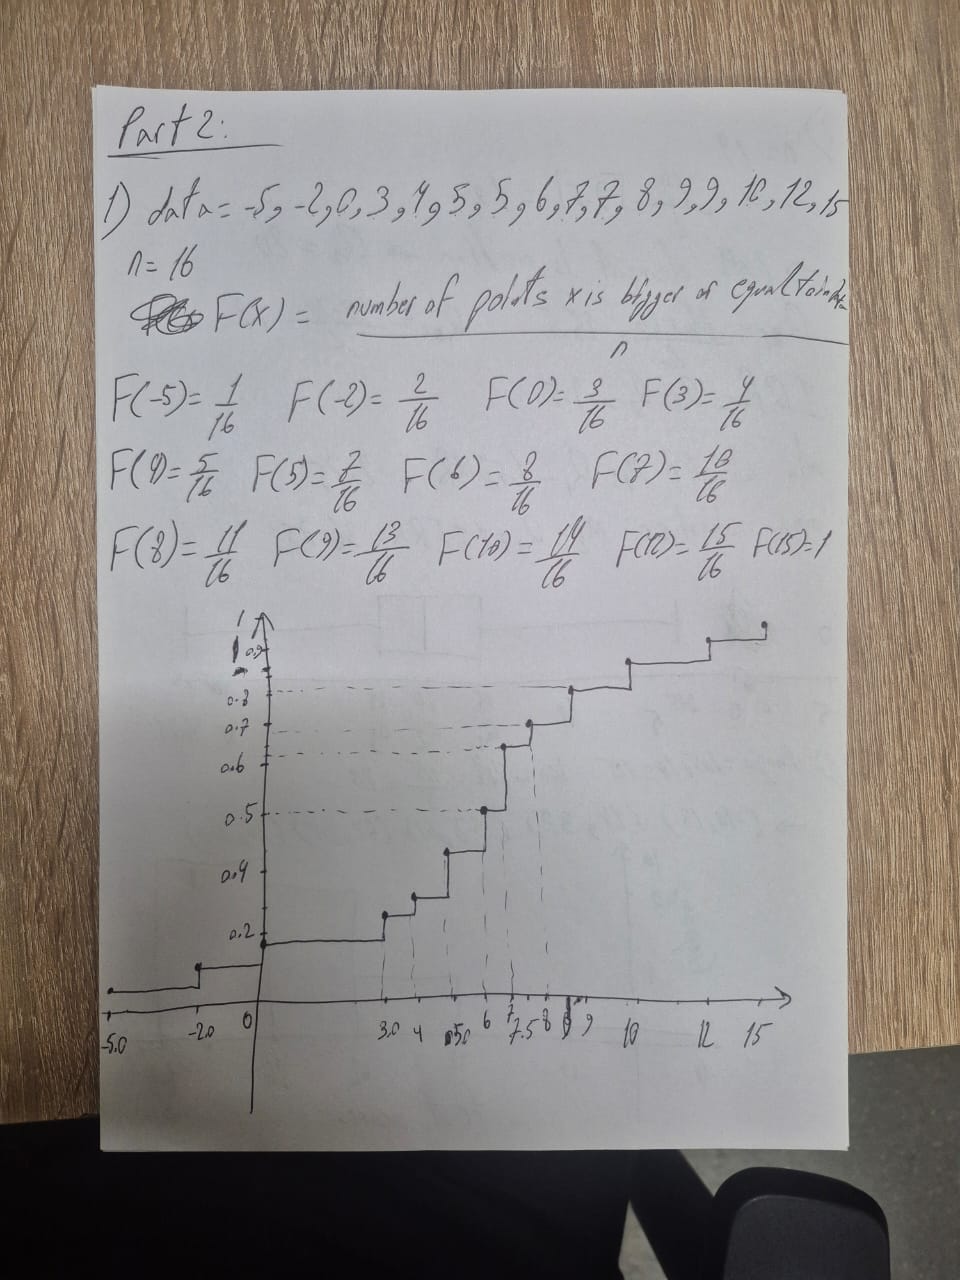 Part 2:
1) data = -5, -2, 0, 3, 4, 5, 5, 6, 7, 7, 8, 9, 9, 10, 12, 15
n = 16
F(x) = number of points x is bigger or equal to in data
n
F(-5) = 1/16 F(-2) = 2/16 F(0) = 3/16 F(3) = 4/16
F(4) = 5/16 F(5) = 7/16 F(6) = 8/16 F(7) = 10/16
F(8) = 11/16 F(9) = 13/16 F(10) = 14/16 F(12) = 15/16 F(15) = 1
1
0.9
0.8
0.7
0.6
0.5
0.4
0.2
-5.0 -2.0 0 3.0 4 50 6 7 7.5 8 9 10 12 15